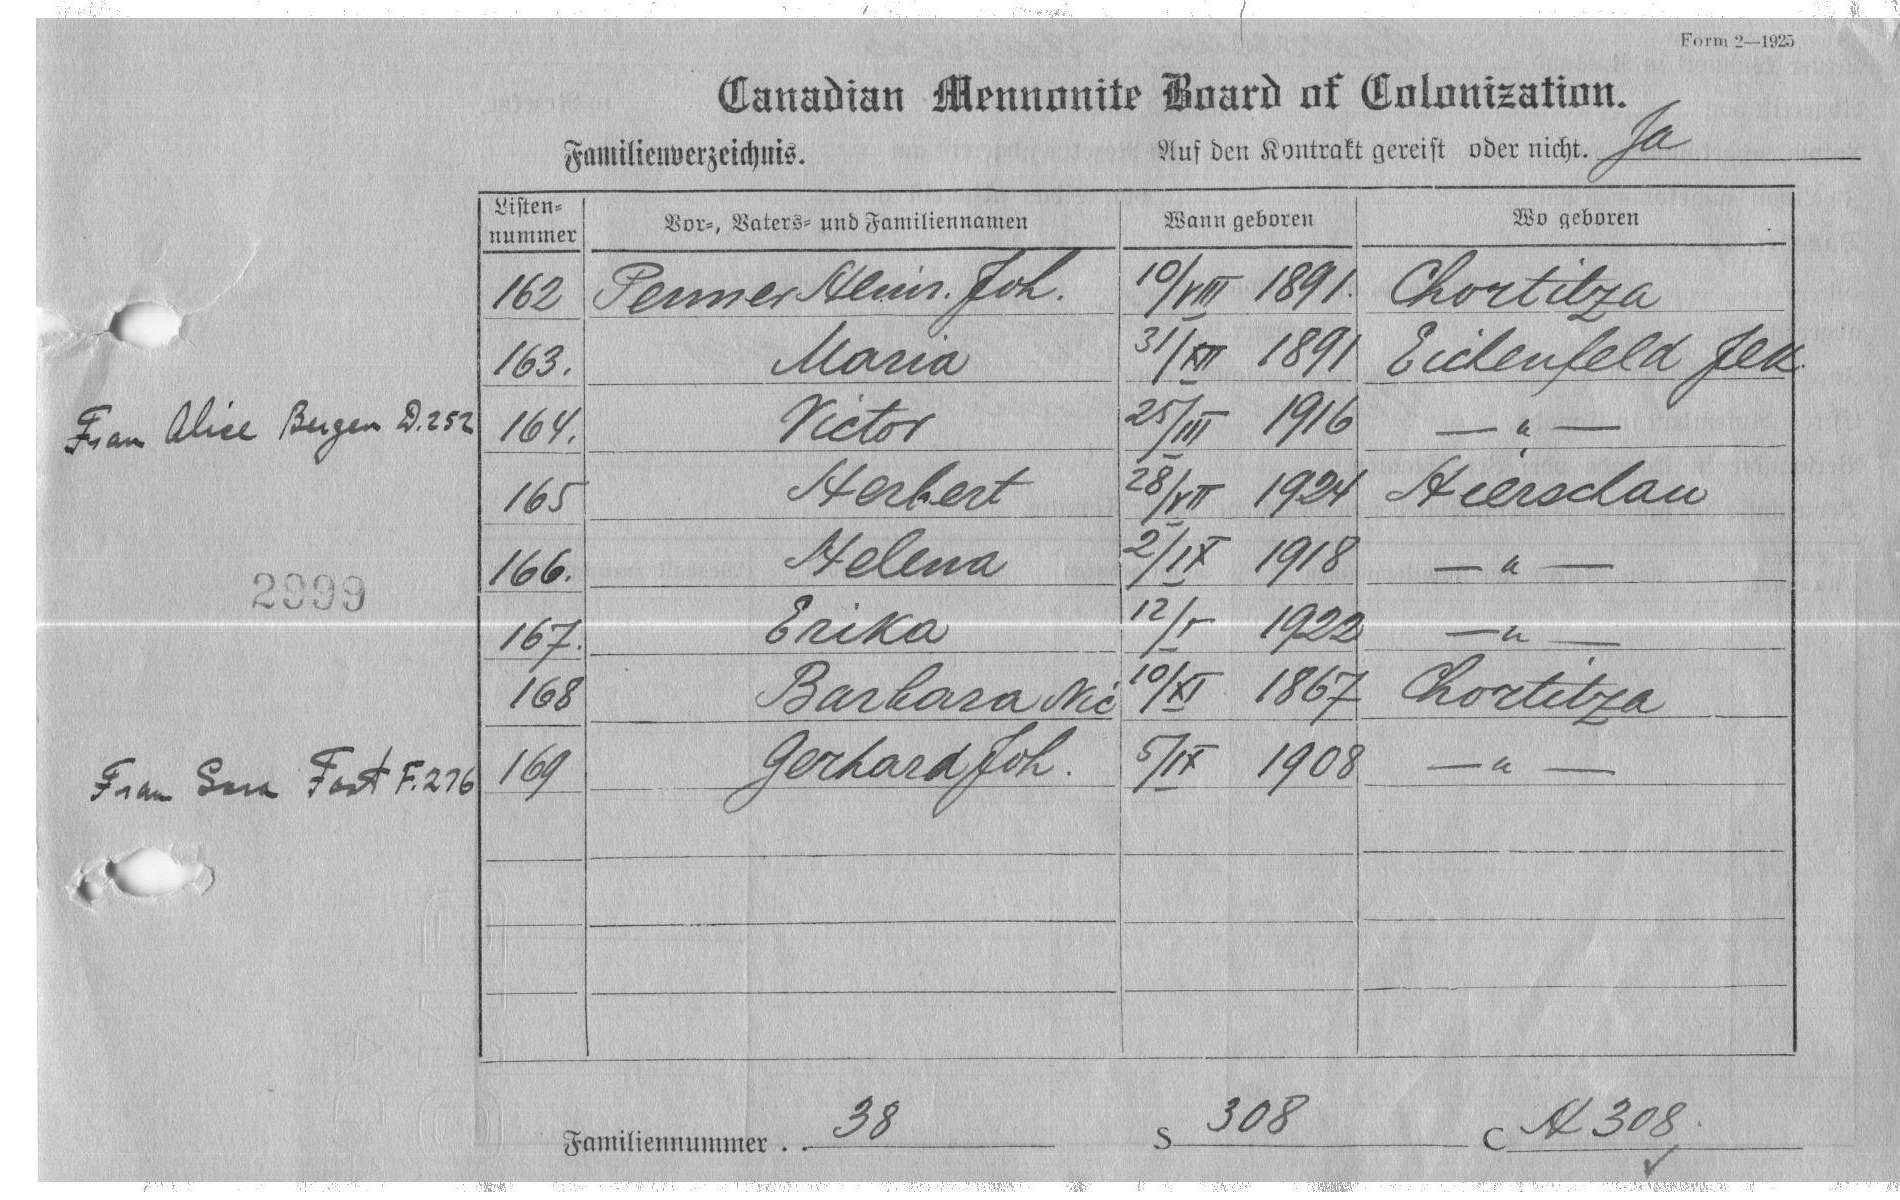 Form 2—1925
Canadian Mennonite Board of Colonization.
Familienverzeichnis. Auf den Kontrakt gereist oder nicht. Ja
Listen-nummer Vor-, Vaters- und Familiennamen Wann geboren Wo geboren
162 Penner Heinr. Joh. 10/VIII 1891. Chortitza
163. Maria 31/XII 1891 Eichenfeld Jek.
Frau Alice Bergen D.252 164. Victor 25/III 1916 — " —
165 Herbert 28/VII 1924 Hierschau
166. Helena 2/IX 1918 — " —
2999
167. Erika 12/V 1922 — " —
168 Barbara Nic 10/XI 1867 Chortitza
Frau Sara Fast F.276 169 Gerhard Joh. 5/IX 1908 — " —
Familiennummer . . 38 S 308 C H 308